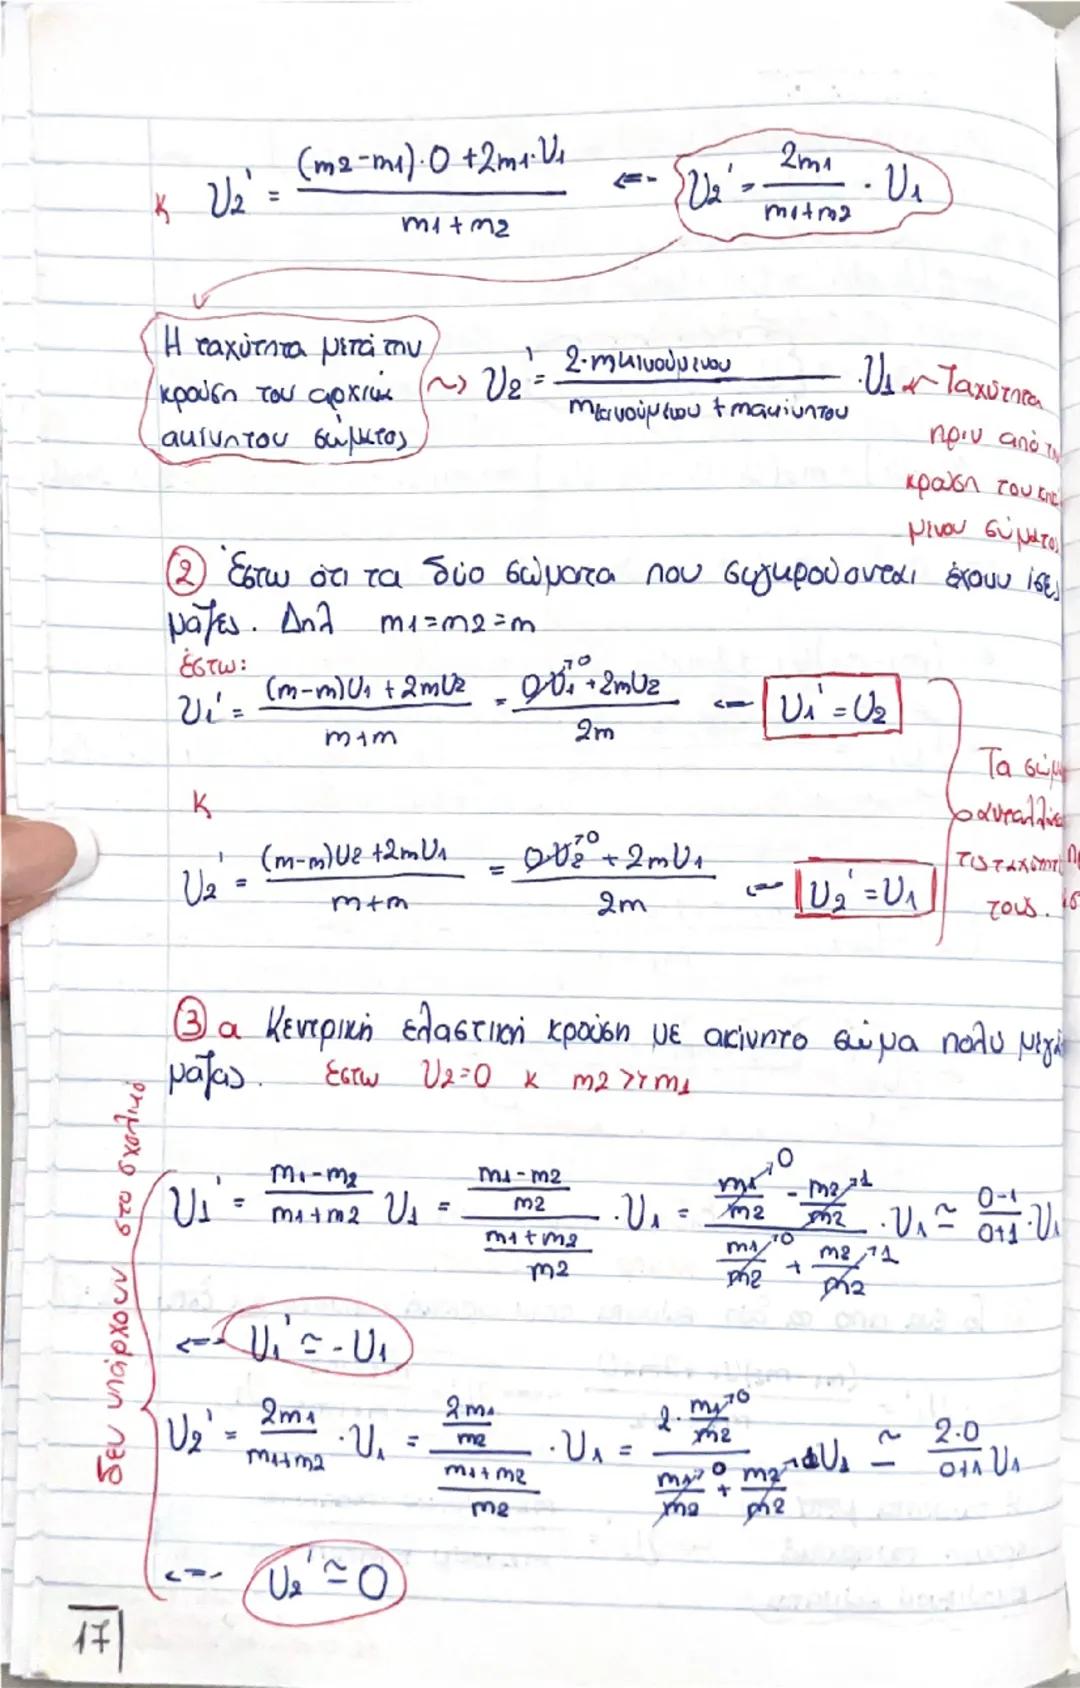 κ υ₂' = ((m₂-m₁)·0 + 2m₁·υ₁)/(m₁+m₂) <=- υ₂' = 2m₁/(m₁+m₂) · υ₁
Η ταχύτητα μετά την
κρούση του αρχικά
ακίνητου σώματος
~> υ₂' = 2·mκινούμενου/(mκινούμενου + mακίνητου) · υ₁ <~ Ταχύτητα
πριν από
κρούση του
μενου σώματος
② Έστω ότι τα δύο σώματα που συγκρούονται έχουν ίσες
μάζες. Δηλ m₁=m₂=m
έστω:
υ₁' = ((m-m)υ₁ + 2mυ₂)/(m+m) = (0υ₁→0 + 2mυ₂)/2m <=- υ₁' = υ₂
κ
υ₂' = ((m-m)υ₂ + 2mυ₁)/(m+m) = (0υ₂→0 + 2mυ₁)/2m <=- υ₂' = υ₁
Τα
τους.
③ α Κεντρική ελαστική κρούση με ακίνητο σώμα πολύ
μάζας. έστω υ₂=0 κ m₂>>m₁
δεν υπάρχουν στο σχολικό
υ₁' = (m₁-m₂)/(m₁+m₂) υ₁ = ((m₁-m₂)/m₂)/((m₁+m₂)/m₂) · υ₁ = (m₁/m₂→0 - m₂/m₂→1)/(m₁/m₂→0 + m₂/m₂→1) · υ₁ ≃ (0-1)/(0+1) · υ₁
<=- υ₁' ≃ -υ₁
υ₂' = 2m₁/(m₁+m₂) · υ₁ = (2m₁/m₂)/((m₁+m₂)/m₂) · υ₁ = (2·m₁/m₂→0)/(m₁/m₂→0 + m₂/m₂→1) υ₁ ≃ 2·0/(0+1) υ₁
<=- υ₂' ≃ 0
17